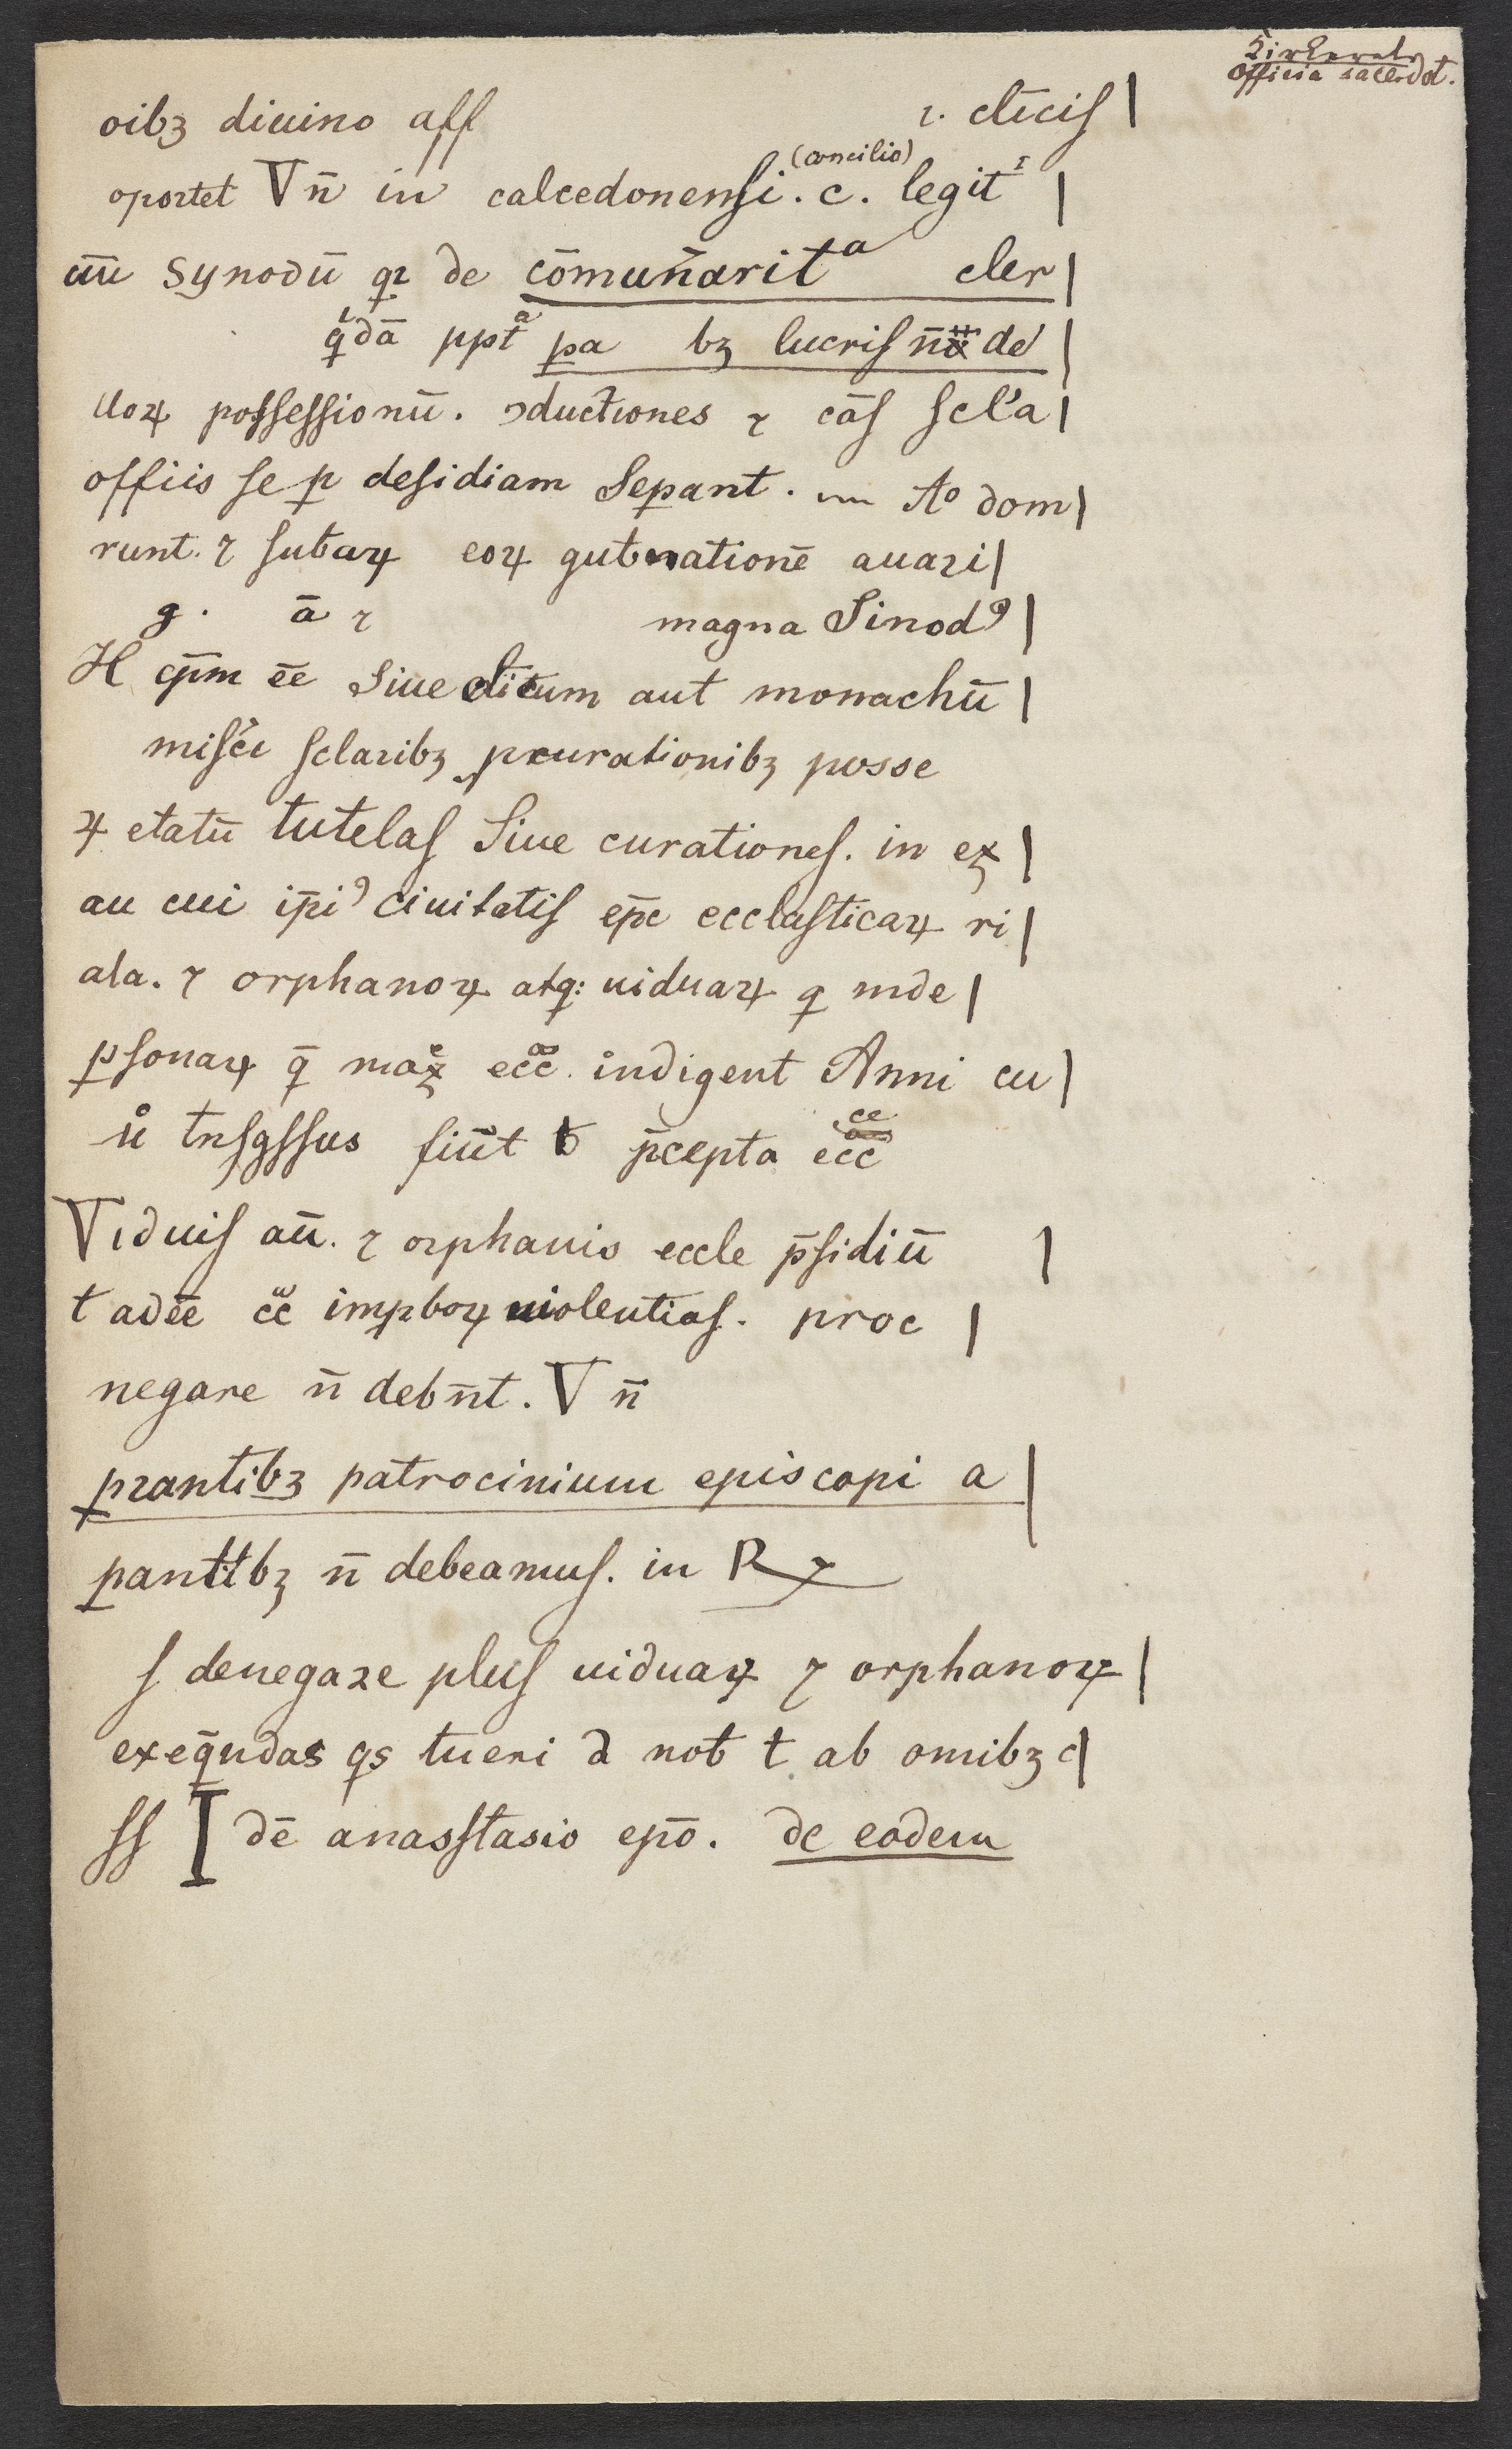 officia sacerdot.
oibꝫ diuino aff ꝛ. cl̄iciſ |
(concilio)
oportet Vn̄ in calcedonenſi. c. legit |
aū synodū qꝛ de cōmun̄aritᵃ cler |
qͥdā ppt̄ᵃ ꝑa bꝫ lucriſ de |
uoꝝ poſſeſſionū. ꝯduct̄iones ⁊ cāſ ſcl'a |
officis ſe ꝑ deſidiam Seꝑant. Aº dom |
runt. ⁊ ſubaꝝ eoꝝ gub̄nationē auaꝛi |
g. ā ⁊ magna Sinodꝰ |
H ep̄m ēē Siue cl̄icum aut monachū |
miſc̄i ſclaribꝫ ꝓcurationibꝫ posse
ꝝ etatū tutelaſ Siue curationeſ. in ex |
au cui ip̄iꝰ ciuitatiſ ep̄c ecclaſticaꝝ ri |
ala. ⁊ orphanoꝝ atq: uiduaꝝ q inde |
ꝑſonaꝝ q̄ max̄ ecc̄. indigent Anni cu |
ce
u̇ tnſgſſus fiūt p̄cepta ecc̄
Viduiſ aū. ⁊ oꝛphanis eccle p̄ſidiū |
t adēē cc̄ impboꝝ uiolentiaſ. proc |
negare n̄ debn̄t. V n̄
ꝑꝛantibꝫ patrocinium episcopi a |
ꝑanttbꝫ n̄ debeamuſ. in R⁊
ſ denegaꝛe pluſ uiduaꝝ ⁊ orphanoꝝ |
exeq̄ndas qs tueri a nob̄ t ab omibꝫ c |
ſſ I dē anasſtasio ep̄o. de eodem